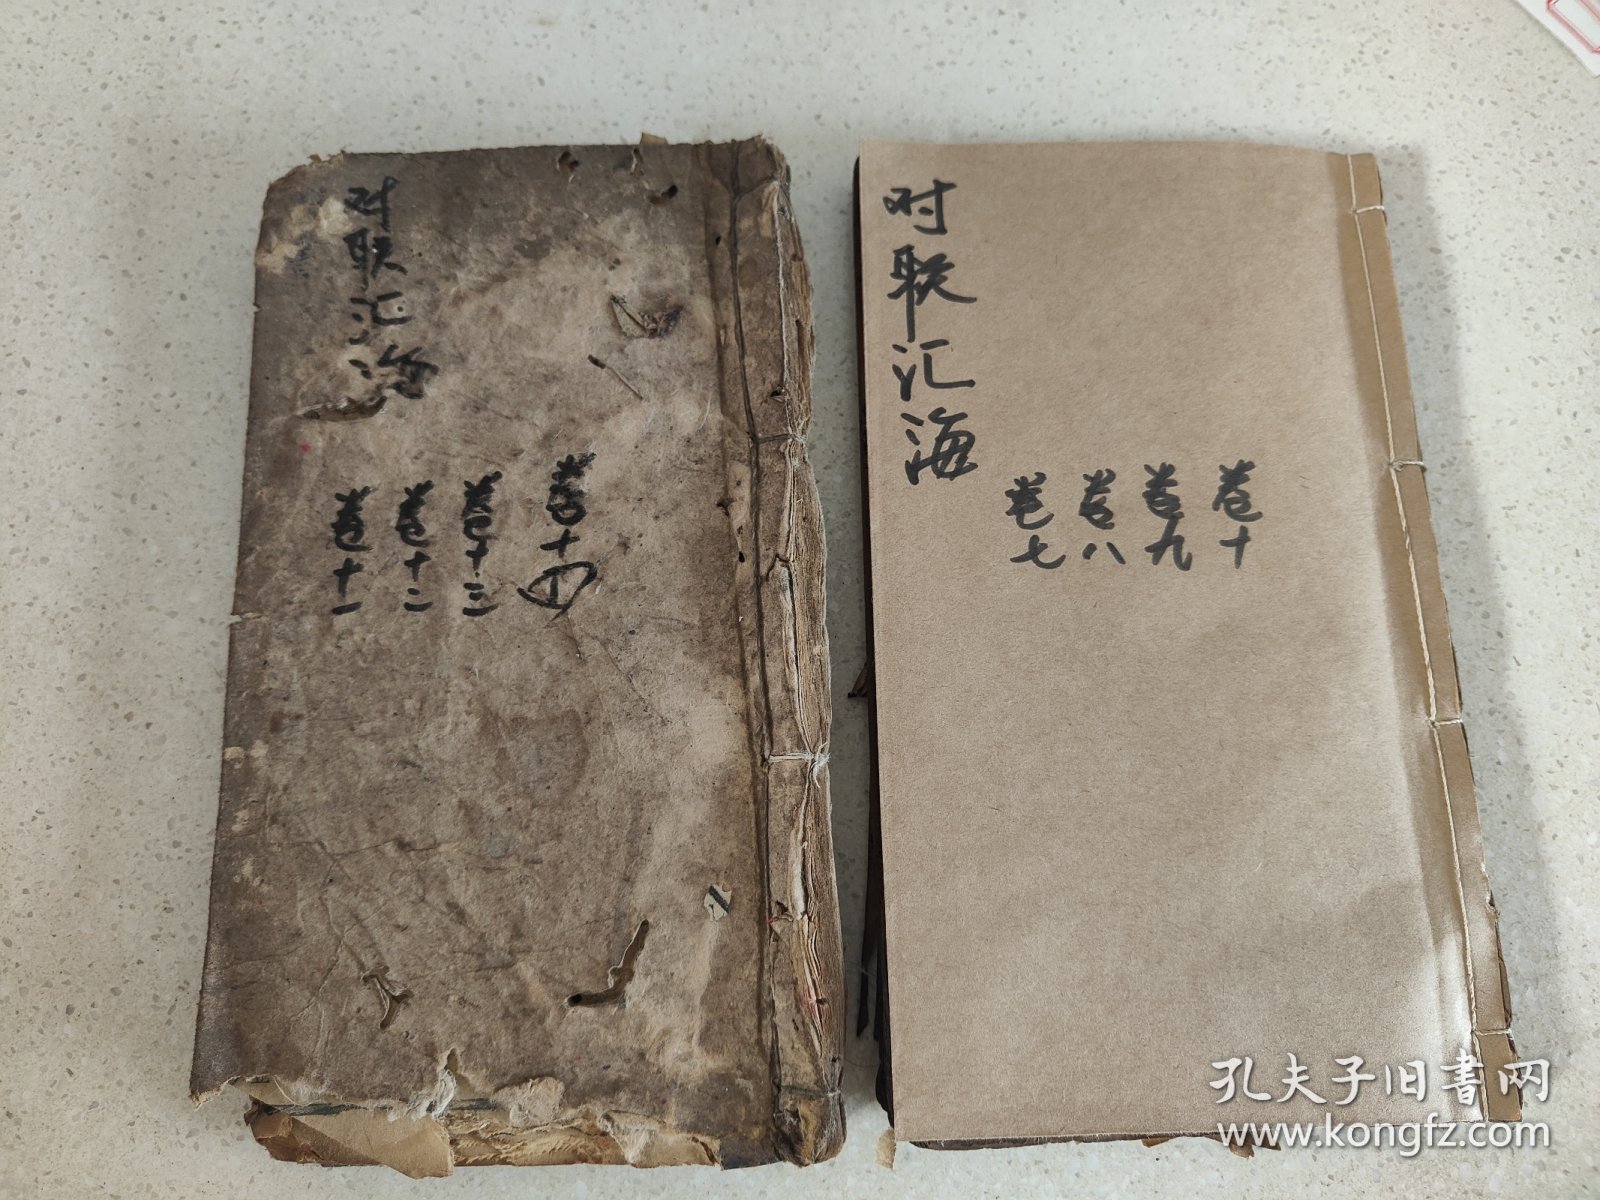 对联汇海
卷十一
卷十二
卷十三
卷十四
对联汇海
卷七
卷八
卷九
卷十
孔夫子旧書网
www.kongfz.com